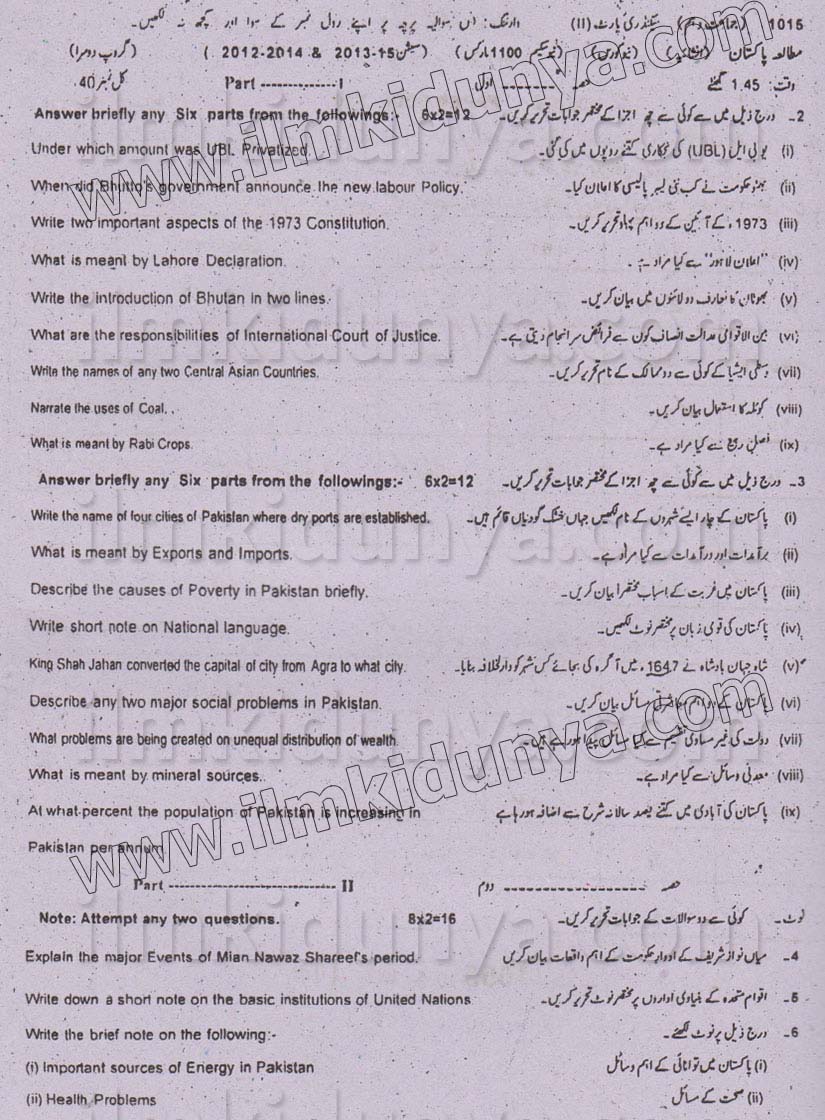 وارننگ: اس سوالیہ پرچہ پر اپنے رول نمبر کے سوا اور کچھ نہ لکھیں۔ سیکنڈری پارٹ (II) (جماعت دہم) 1015
مطالعہ پاکستان (انشائیہ) (نیوکورس) (نیوسکیم 1100 مارکس) (سیشن 15-2013 & 2014-2012) (گروپ دوسرا)
وقت: 1.45 گھنٹے حصہ اول Part -------------- I کل نمبر 40
Answer briefly any Six parts from the followings:- 6x2=12 2- درج ذیل میں سے کوئی سے چھ اجزا کے مختصر جوابات تحریر کریں۔
Under which amount was UBL Privatized. (i) یو بی ایل (UBL) کی نجکاری کتنے روپوں میں کی گئی۔
When did Bhutto's government announce the new labour Policy. (ii) بھٹو حکومت نے کب نئی لیبر پالیسی کا اعلان کیا۔
Write two important aspects of the 1973 Constitution. (iii) 1973ء کے آئین کے دو اہم پہلو تحریر کریں۔
What is meant by Lahore Declaration. (iv) "اعلان لاہور" سے کیا مراد ہے۔
Write the introduction of Bhutan in two lines. (v) بھوٹان کا تعارف دو لائنوں میں بیان کریں۔
What are the responsibilities of International Court of Justice. (vi) بین الاقوامی عدالت انصاف کون سے فرائض سرانجام دیتی ہے۔
Write the names of any two Central Asian Countries. (vii) وسطی ایشیا کے کوئی سے دو ممالک کے نام تحریر کریں۔
Narrate the uses of Coal. (viii) کوئلہ کا استعمال بیان کریں۔
What is meant by Rabi Crops. (ix) فصل ربیع سے کیا مراد ہے۔
Answer briefly any Six parts from the followings:- 6x2=12 3- درج ذیل میں سے کوئی سے چھ اجزا کے مختصر جوابات تحریر کریں۔
Write the name of four cities of Pakistan where dry ports are established. (i) پاکستان کے چار ایسے شہروں کے نام لکھیں جہاں خشک گودیاں قائم ہیں۔
What is meant by Exports and Imports. (ii) برآمدات اور درآمدات سے کیا مراد ہے۔
Describe the causes of Poverty in Pakistan briefly. (iii) پاکستان میں غربت کے اسباب مختصرا بیان کریں۔
Write short note on National language. (iv) پاکستان کی قومی زبان پر مختصر نوٹ لکھیں۔
King Shah Jahan converted the capital of city from Agra to what city. (v) شاہ جہان بادشاہ نے 1647ء میں آگرہ کی بجائے کس شہر کو دارلخلافہ بنایا۔
Describe any two major social problems in Pakistan. (vi) پاکستان کے دو اہم معاشرتی مسائل بیان کریں۔
What problems are being created on unequal distribution of wealth. (vii) دولت کی غیر مساوی تقسیم سے کیا مسائل پیدا ہو رہے ہیں۔
What is meant by mineral sources. (viii) معدنی وسائل سے کیا مراد ہے۔
At what percent the population of Pakistan is increasing in (ix) پاکستان کی آبادی میں کتنے فیصد سالانہ شرح سے اضافہ ہو رہا ہے
Pakistan per annum
Part -------------------------------- II حصہ دوم
Note: Attempt any two questions. 8x2=16 نوٹ۔ کوئی سے دو سوالات کے جوابات تحریر کریں۔
Explain the major Events of Mian Nawaz Shareef's period. 4- میاں نواز شریف کے ادوار حکومت کے اہم واقعات بیان کریں
Write down a short note on the basic institutions of United Nations 5- اقوام متحدہ کے بنیادی اداروں پر مختصر نوٹ تحریر کریں۔
Write the brief note on the following:- 6- درج ذیل پر نوٹ لکھئے۔
(i) Important sources of Energy in Pakistan (i) پاکستان میں توانائی کے اہم وسائل
(ii) Health Problems (ii) صحت کے مسائل
www.ilmkidunya.com
www.ilmkidunya.com
ilmkidunya.com
ilmkidunya.com
ilmkidunya.com
ilmkidunya.com
ilmkidunya.com